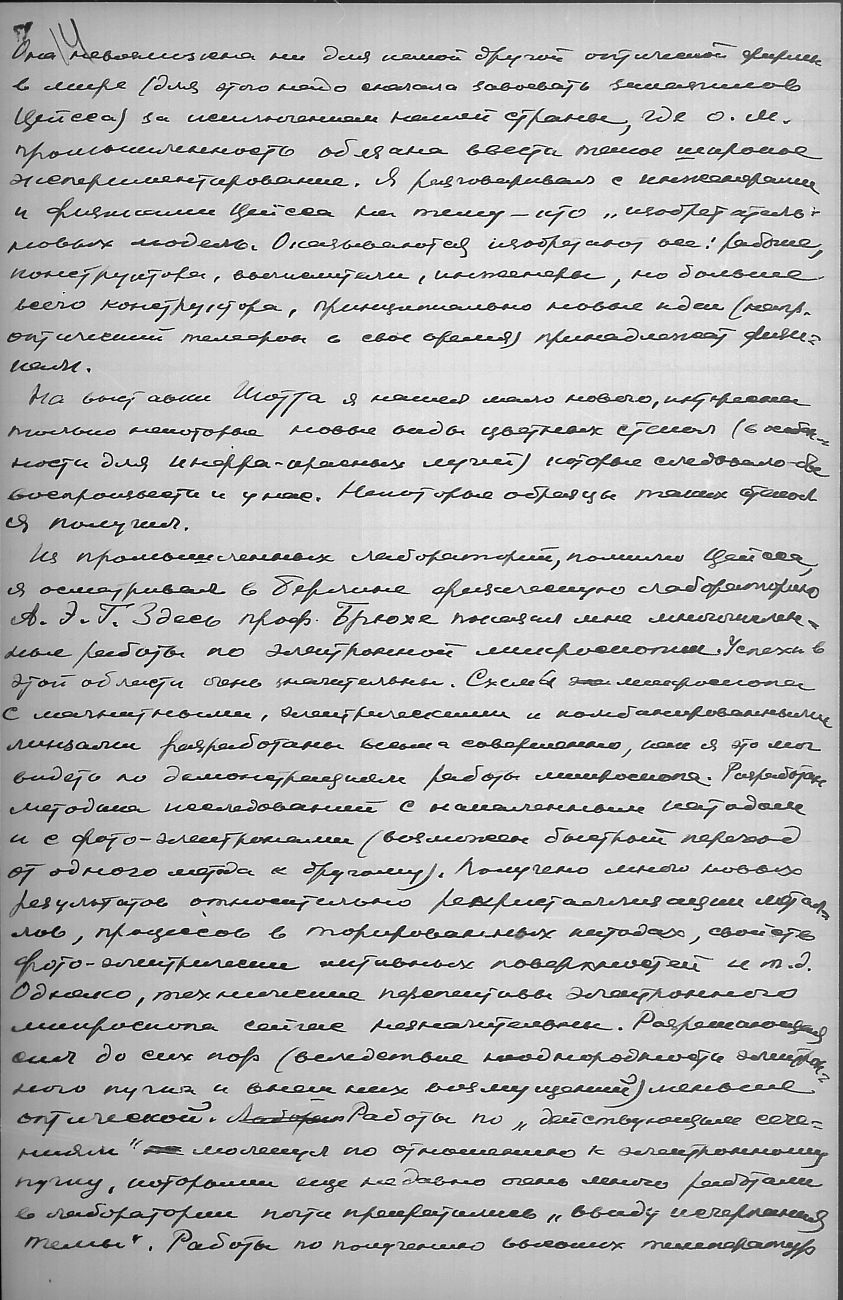 7 14
Она невозможна ни для какой другой оптической фирмы
в мире (для этого надо сначала завоевать заказчиков
Цейсса) за исключением нашей страны, где о.-м.
промышленность обязана ввести такое широкое
экспериментирование. Я разговаривал с инженерами
и физиками Цейсса на тему – кто „изобретатель"
новых модель. Оказываются изобретают все: рабочие,
конструктора, вычислители, инженеры, но больше
всего конструктора, принципиально новые идеи (напр.
оптический телефон в свое время) принадлежат физи-
кам.
На выставки Шотта я нашел мало нового, интересны
только некоторые новые виды цветных стекол (в част-
ности для инфра-красных лучей) которые следовало бы
воспроизвести и у нас. Некоторые образцы таких стекол
я получил.
Из промышленных лабораторий, помимо Цейсса,
я осматривал в Берлине физическую лабораторию
А.Э.Г. Здесь проф. Брюхе показал мне многочислен-
ные работы по электронной микроскопии. Успехи в
этой области очень значительны. Схемы микроскопа
с магнитными, электрическими и комбинированными
линзами разработаны весьма совершенно, как я это мог
видеть по демонстрациям работы микроскопа. Разработан
методика исследований с накаленным катодом
и с фото-электронами (возможен быстрый переход
от одного метода к другому). Получено много новых
результатов относительно рекристаллизации метал-
лов, процессов в торированных катодах, свойств
фото-электрически активных поверхностей и т.д.
Однако, технические перспективы электронного
микроскопа сейчас незначительны. Разрешающая
сила до сих пор (вследствие неоднородности электрон-
ного пучка и внешних возмущений) меньше
оптической. Работы по „действующим сече-
ниям" молекул по отношению к электронному
пучку, которыми еще недавно очень много работали
в лаборатории почти прекратились „ввиду исчерпания
темы". Работы по получению высоких температур